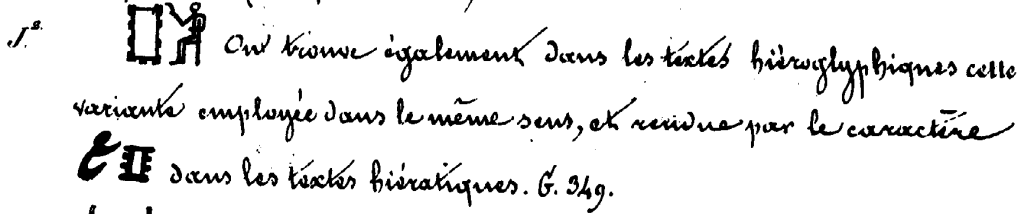 J.s On trouve également dans les textes hiéroglyphiques cette
variante employée dans le même sens, et rendue par le caractère
dans les textes hiératiques. G. 349.